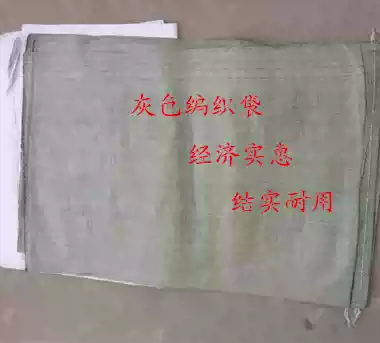 灰色编织袋
经济实惠
结实耐用